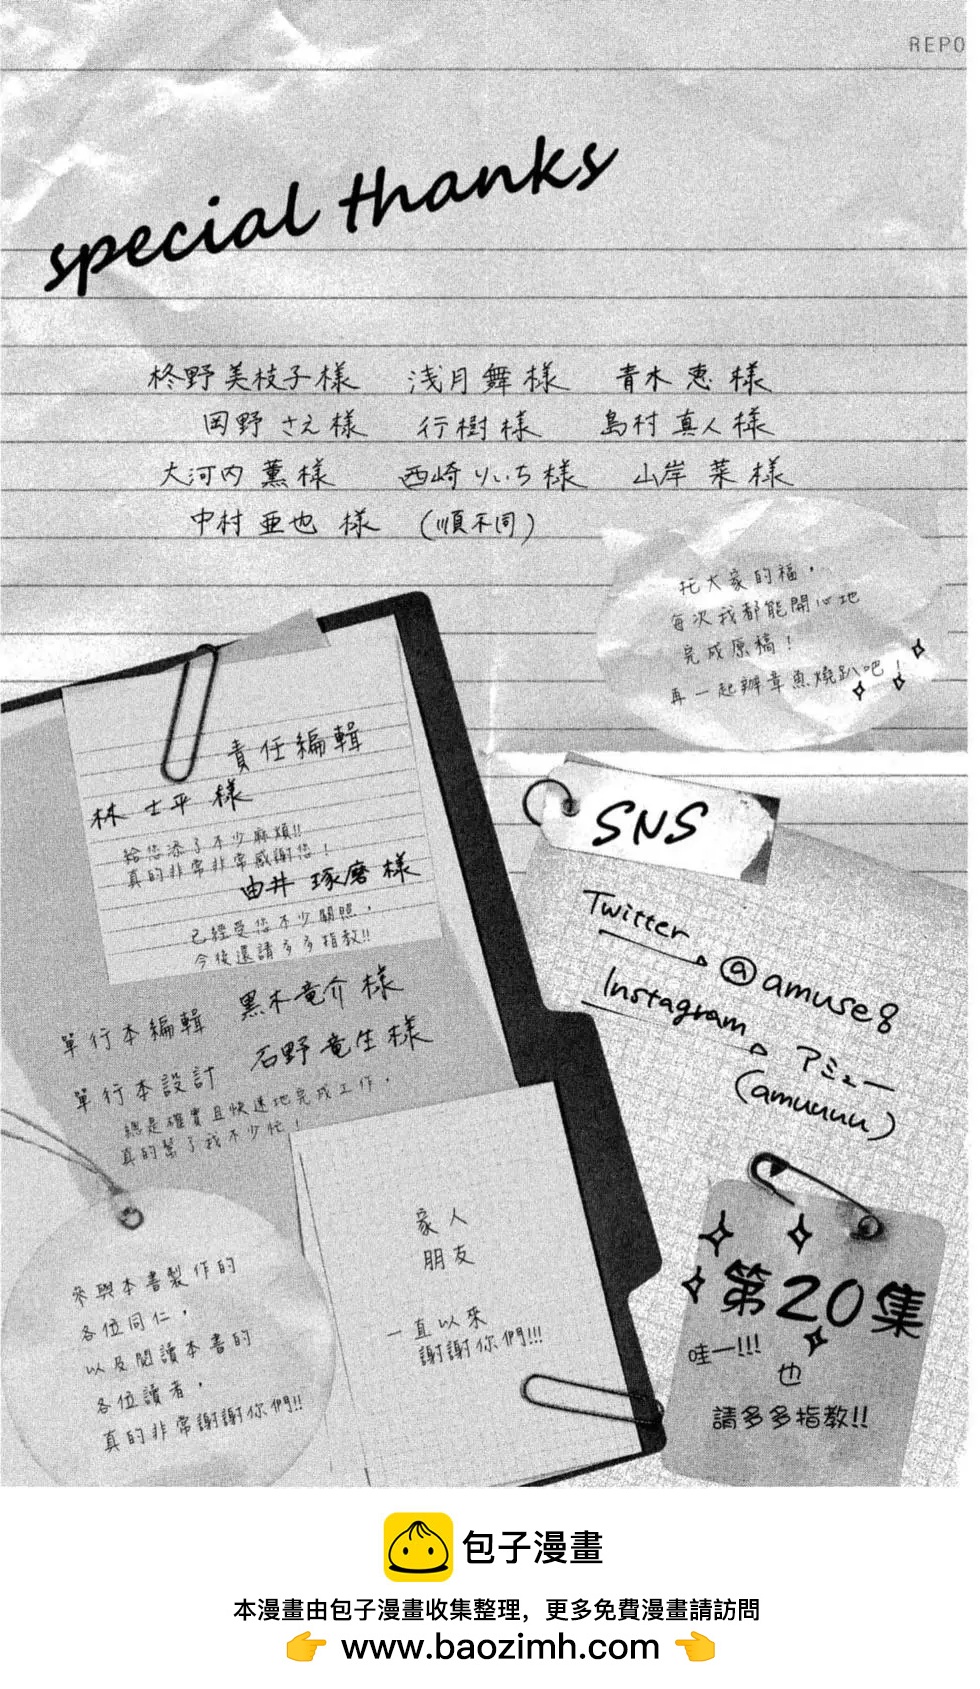 REPO
special thanks
柊野 美枝子 様 浅月 舞 様 青木 恵 様
岡野 さえ 様 行樹 様 島村 真人 様
大河内 薫 様 西崎 りいち 様 山岸 菜 様
中村 亜也 様 (順不同)
托大家的福，
每次我都能開心地
完成原稿！
再一起辦章魚燒趴吧！
責任編輯
林 士平 様
給您添了不少麻煩!!
真的非常非常感謝您！
由井 琢磨 様
已經受您不少關照，
今後還請多多指教!!
單行本編輯 黑木 竜介 様
單行本設計 石野 竜生 様
總是確實且快速地完成工作，
真的幫了我不少忙！
參與本書製作的
各位同仁，
以及閱讀本書的
各位讀者，
真的非常謝謝你們!!
家人
朋友
一直以來
謝謝你們!!!
SNS
Twitter
@amuse8
Instagram
アミュー
(amuuuu)
第20集
哇—!!!
也
請多多指教!!
包子漫畫
本漫畫由包子漫畫收集整理，更多免費漫畫請訪問
👉 www.baozimh.com 👈